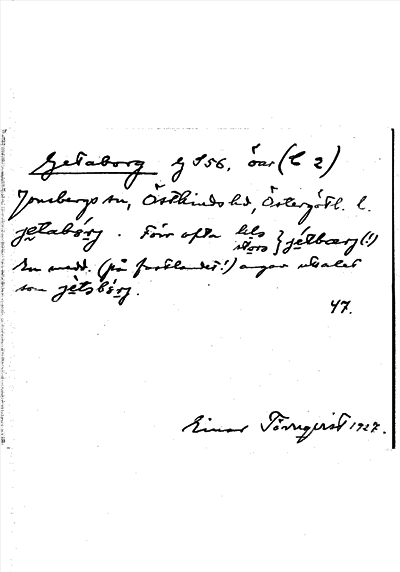 Getaborg G S56, öar (C 2)
Jonsbergs sn, Östkinds hd, Östergötl. l.
jetabórj. Förr ofta stors } jétbærj(!)
En medd. (på fastlandet!) angav uttalet
som jètsbórj.
47.
Einar Törnqvist 1927.